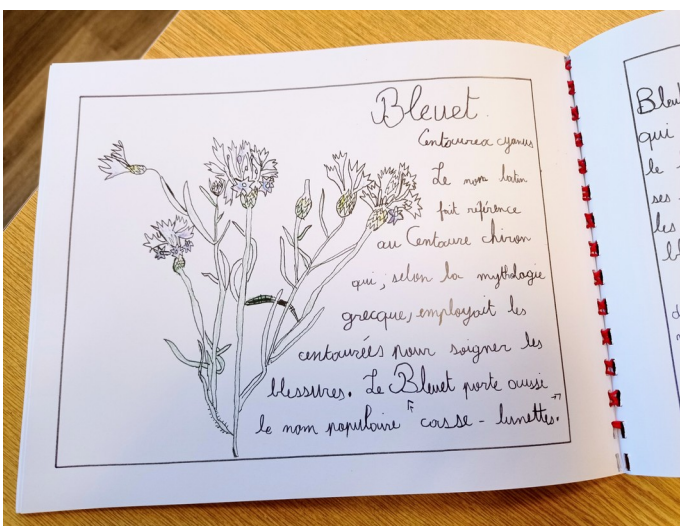 Bleuet.
Centaurea cyanus
Le nom latin
fait référence
au Centaure chiron
qui, selon la mythologie
grecque, employait les
centaurées pour soigner les
blessures. Le Bleuet porte aussi
le nom populaire "casse-lunettes".
Bleu
qui
le
ses
les
bl